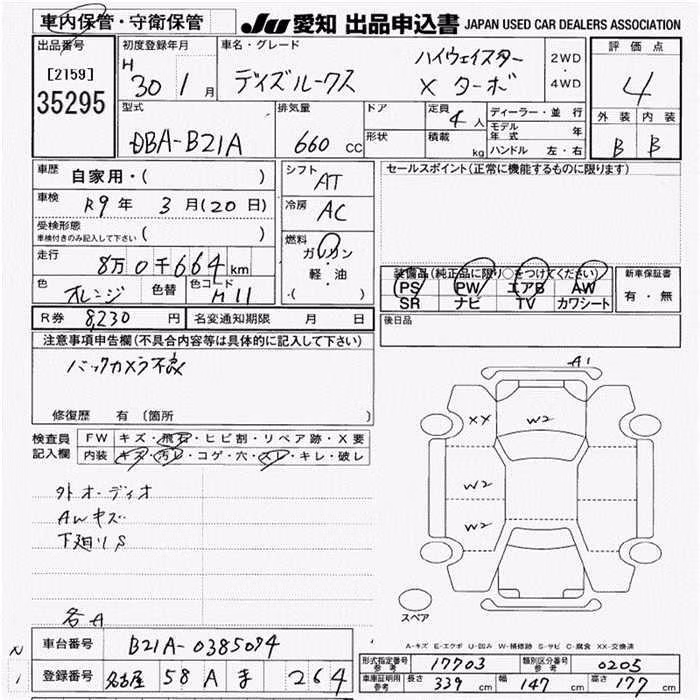 車内保管・守衛保管
JU 愛知 出品申込書 JAPAN USED CAR DEALERS ASSOCIATION
出品番号
[2159]
35295
初度登録年月
H 30 1 月
車名・グレード
デイズルークス
ハイウェイスター
X ターボ
2WD
・
4WD
評価点
4
外装 内装
B B
型式
DBA-B21A
排気量
660 CC
ドア
形状
定員 4 人
積載 kg
ディーラー・並行
モデル年式 年
ハンドル 左・右
車歴
自家用・( )
車検
R9 年 3 月(20 日)
受検形態
車検付きのみ記入して下さい ( )
走行
8万 0 千 664 km
色 オレンジ 色替 色コード M11
シフト
AT
冷房
AC
燃料
ガソリン
・
軽・油
・( )
セールスポイント(正常に機能するものに限ります)
装備品(純正品に限り○をつけてください)
PS PW エアB AW
SR ナビ TV カワシート
新車保証書
有・無
R券 8,230 円 名変通知期限 月 日
後日品
注意事項申告欄(不具合内容等は具体的に記入して下さい)
バックカメラ不良
修復歴 有 (箇所 )
検査員記入欄
FW キズ・飛石・ヒビ割・リペア跡・X要
内装 キズ・汚レ・コゲ・穴・スレ・キレ・破レ
外オーディオ
AWキズ
下廻りS
各A
A1
XX W2
W2
W2
スペア
A-キズ E-エクボ U-凹み W-補修跡 S-サビ C-腐食 XX-交換済
N
1
車台番号 B21A-0385074
登録番号 名古屋 58A ま 264
形式指定番号 参考 17703 類別区分番号 参考 0205
車庫証明用 参考 長さ 339 cm 幅 147 cm 高さ 177 cm